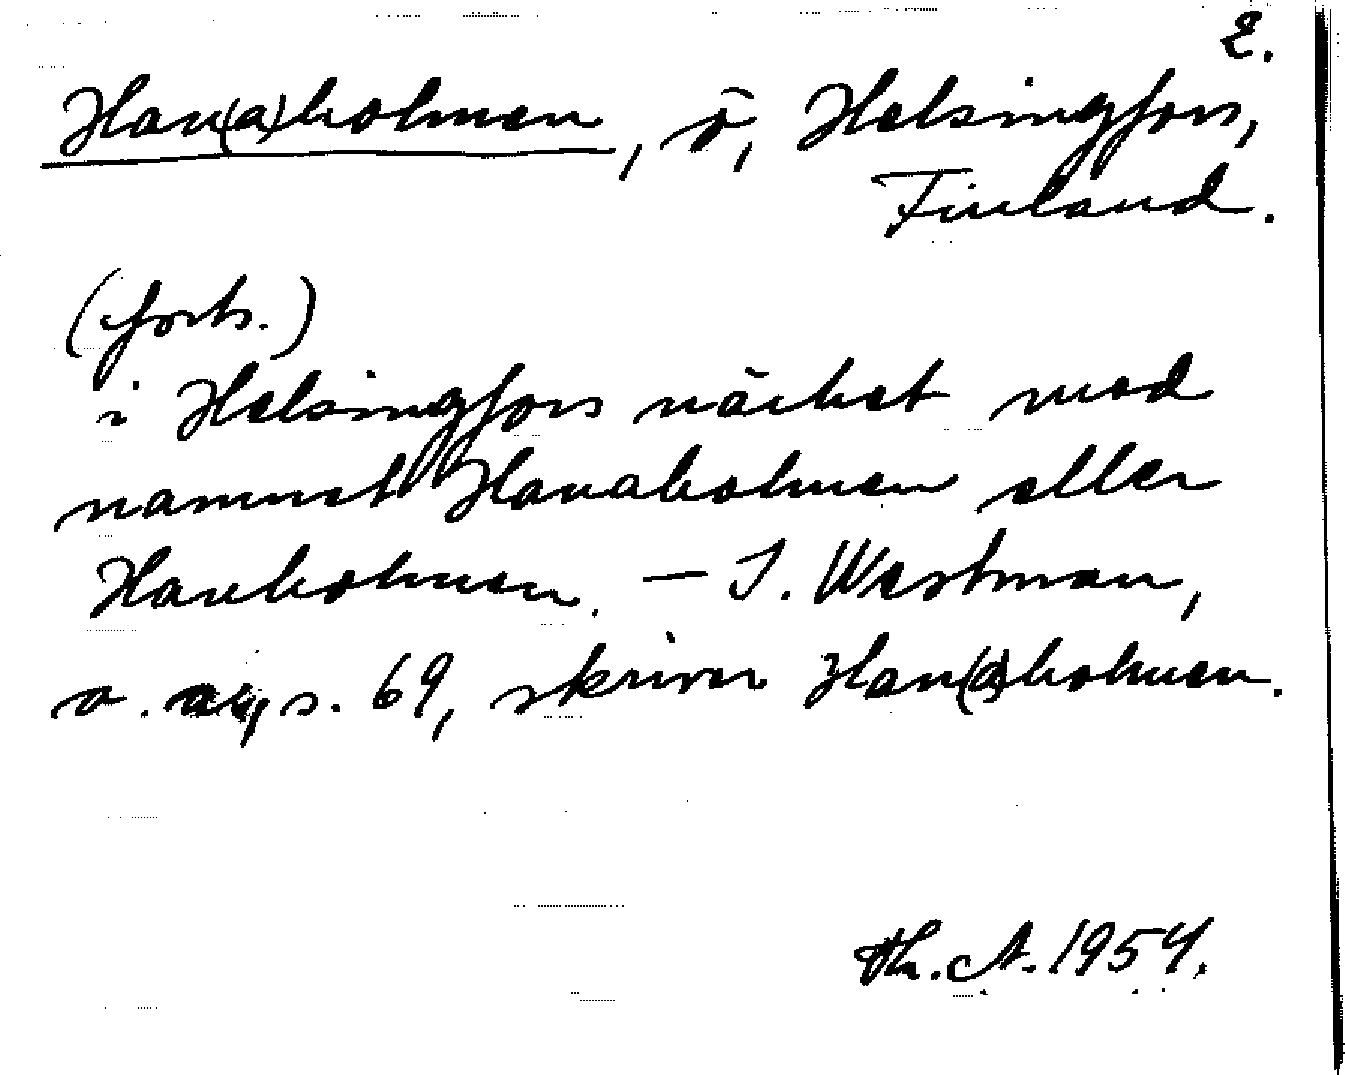 2.
Han(a)holmen, ö, Helsingfors,
Finland.
(forts.)
i Helsingfors märket med
namnet Hanaholmen eller
Hanholmen. — I. Westman,
o. a., s. 69, skriver Han(a)holmen.
Th. A. 1954.